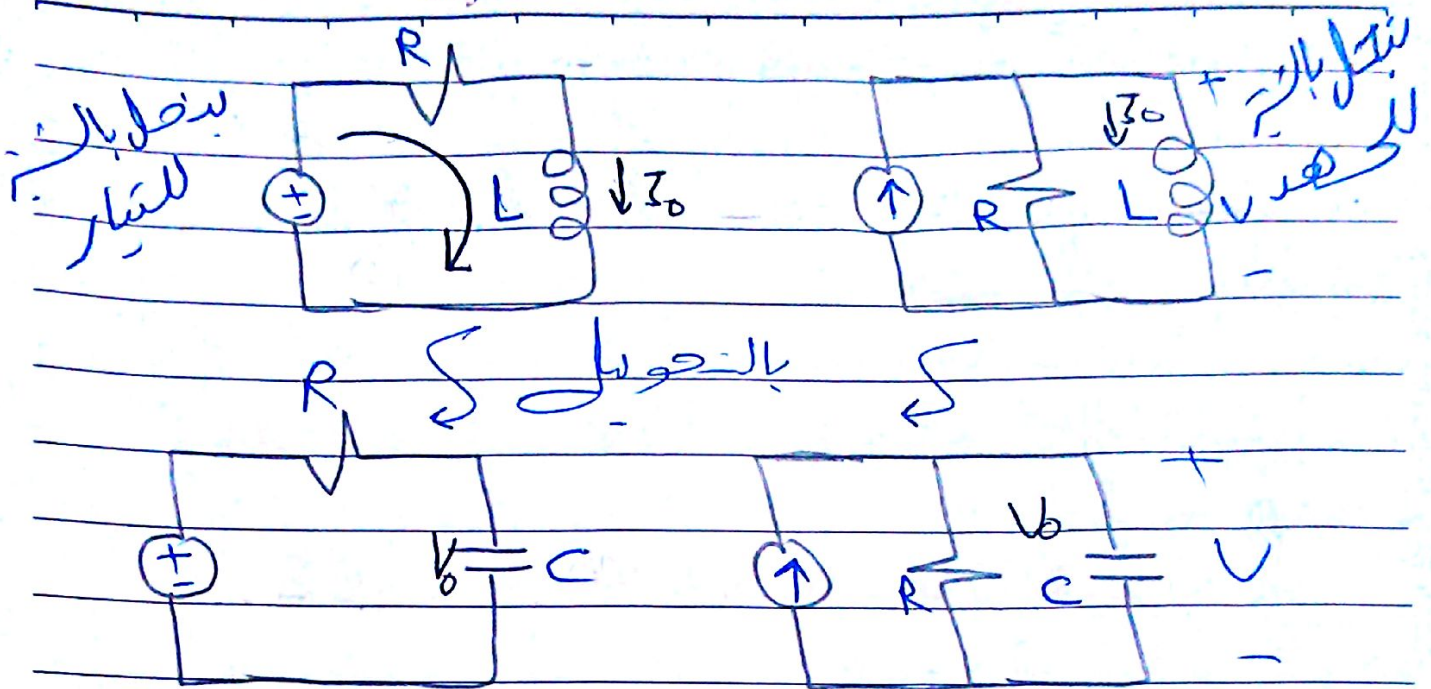 R
بنحل بالنسبة
للتيار
+
-
L
↓I₀
↑
R
L
↓I₀
+
V
-
بنحل بالنسبة
للجهد
بالتحويل
R
+
-
V₀
C
↑
R
V₀
C
+
V
-